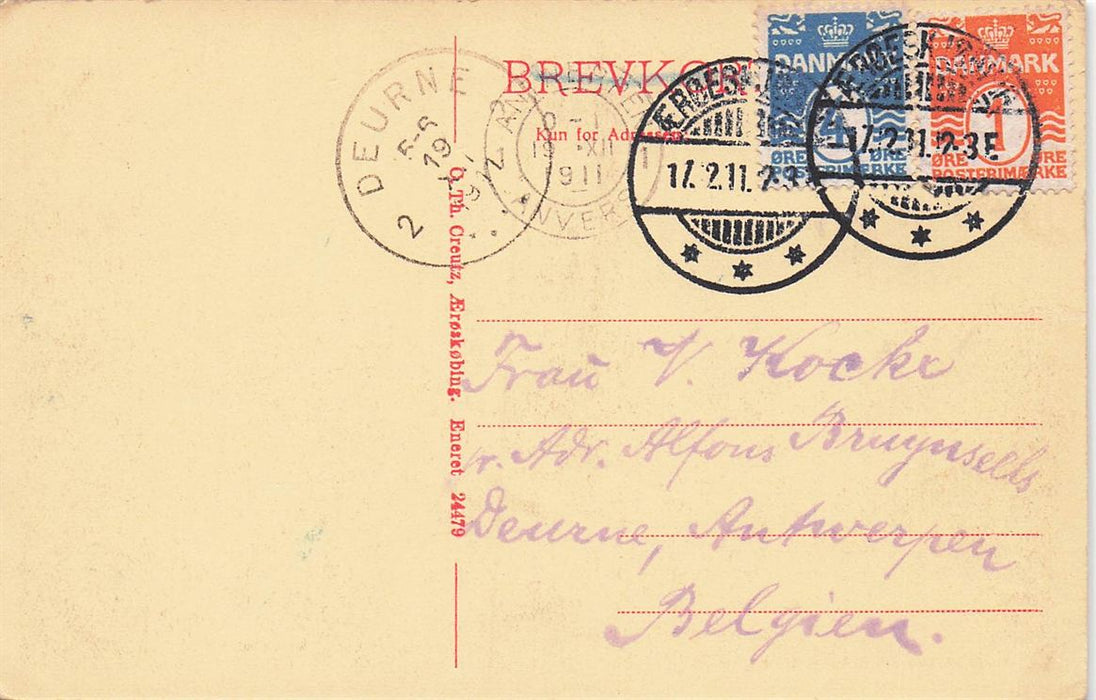 BREVKORT
Kun for Adressen.
DANMARK
4
ØRE ØRE
POSTFRIMÆRKE
DANMARK
1
ØRE ØRE
POSTFRIMÆRKE
17.2.11.2-3
17.2.11.2-3E
DEURNE
2
ANVERS
1911
O. Th. Creutz, Ærøskøbing. Eneret 24479
Frau V. Kockx
pr. Adr. Alfons Bruynseels
Deurne, Antwerpen
Belgien.